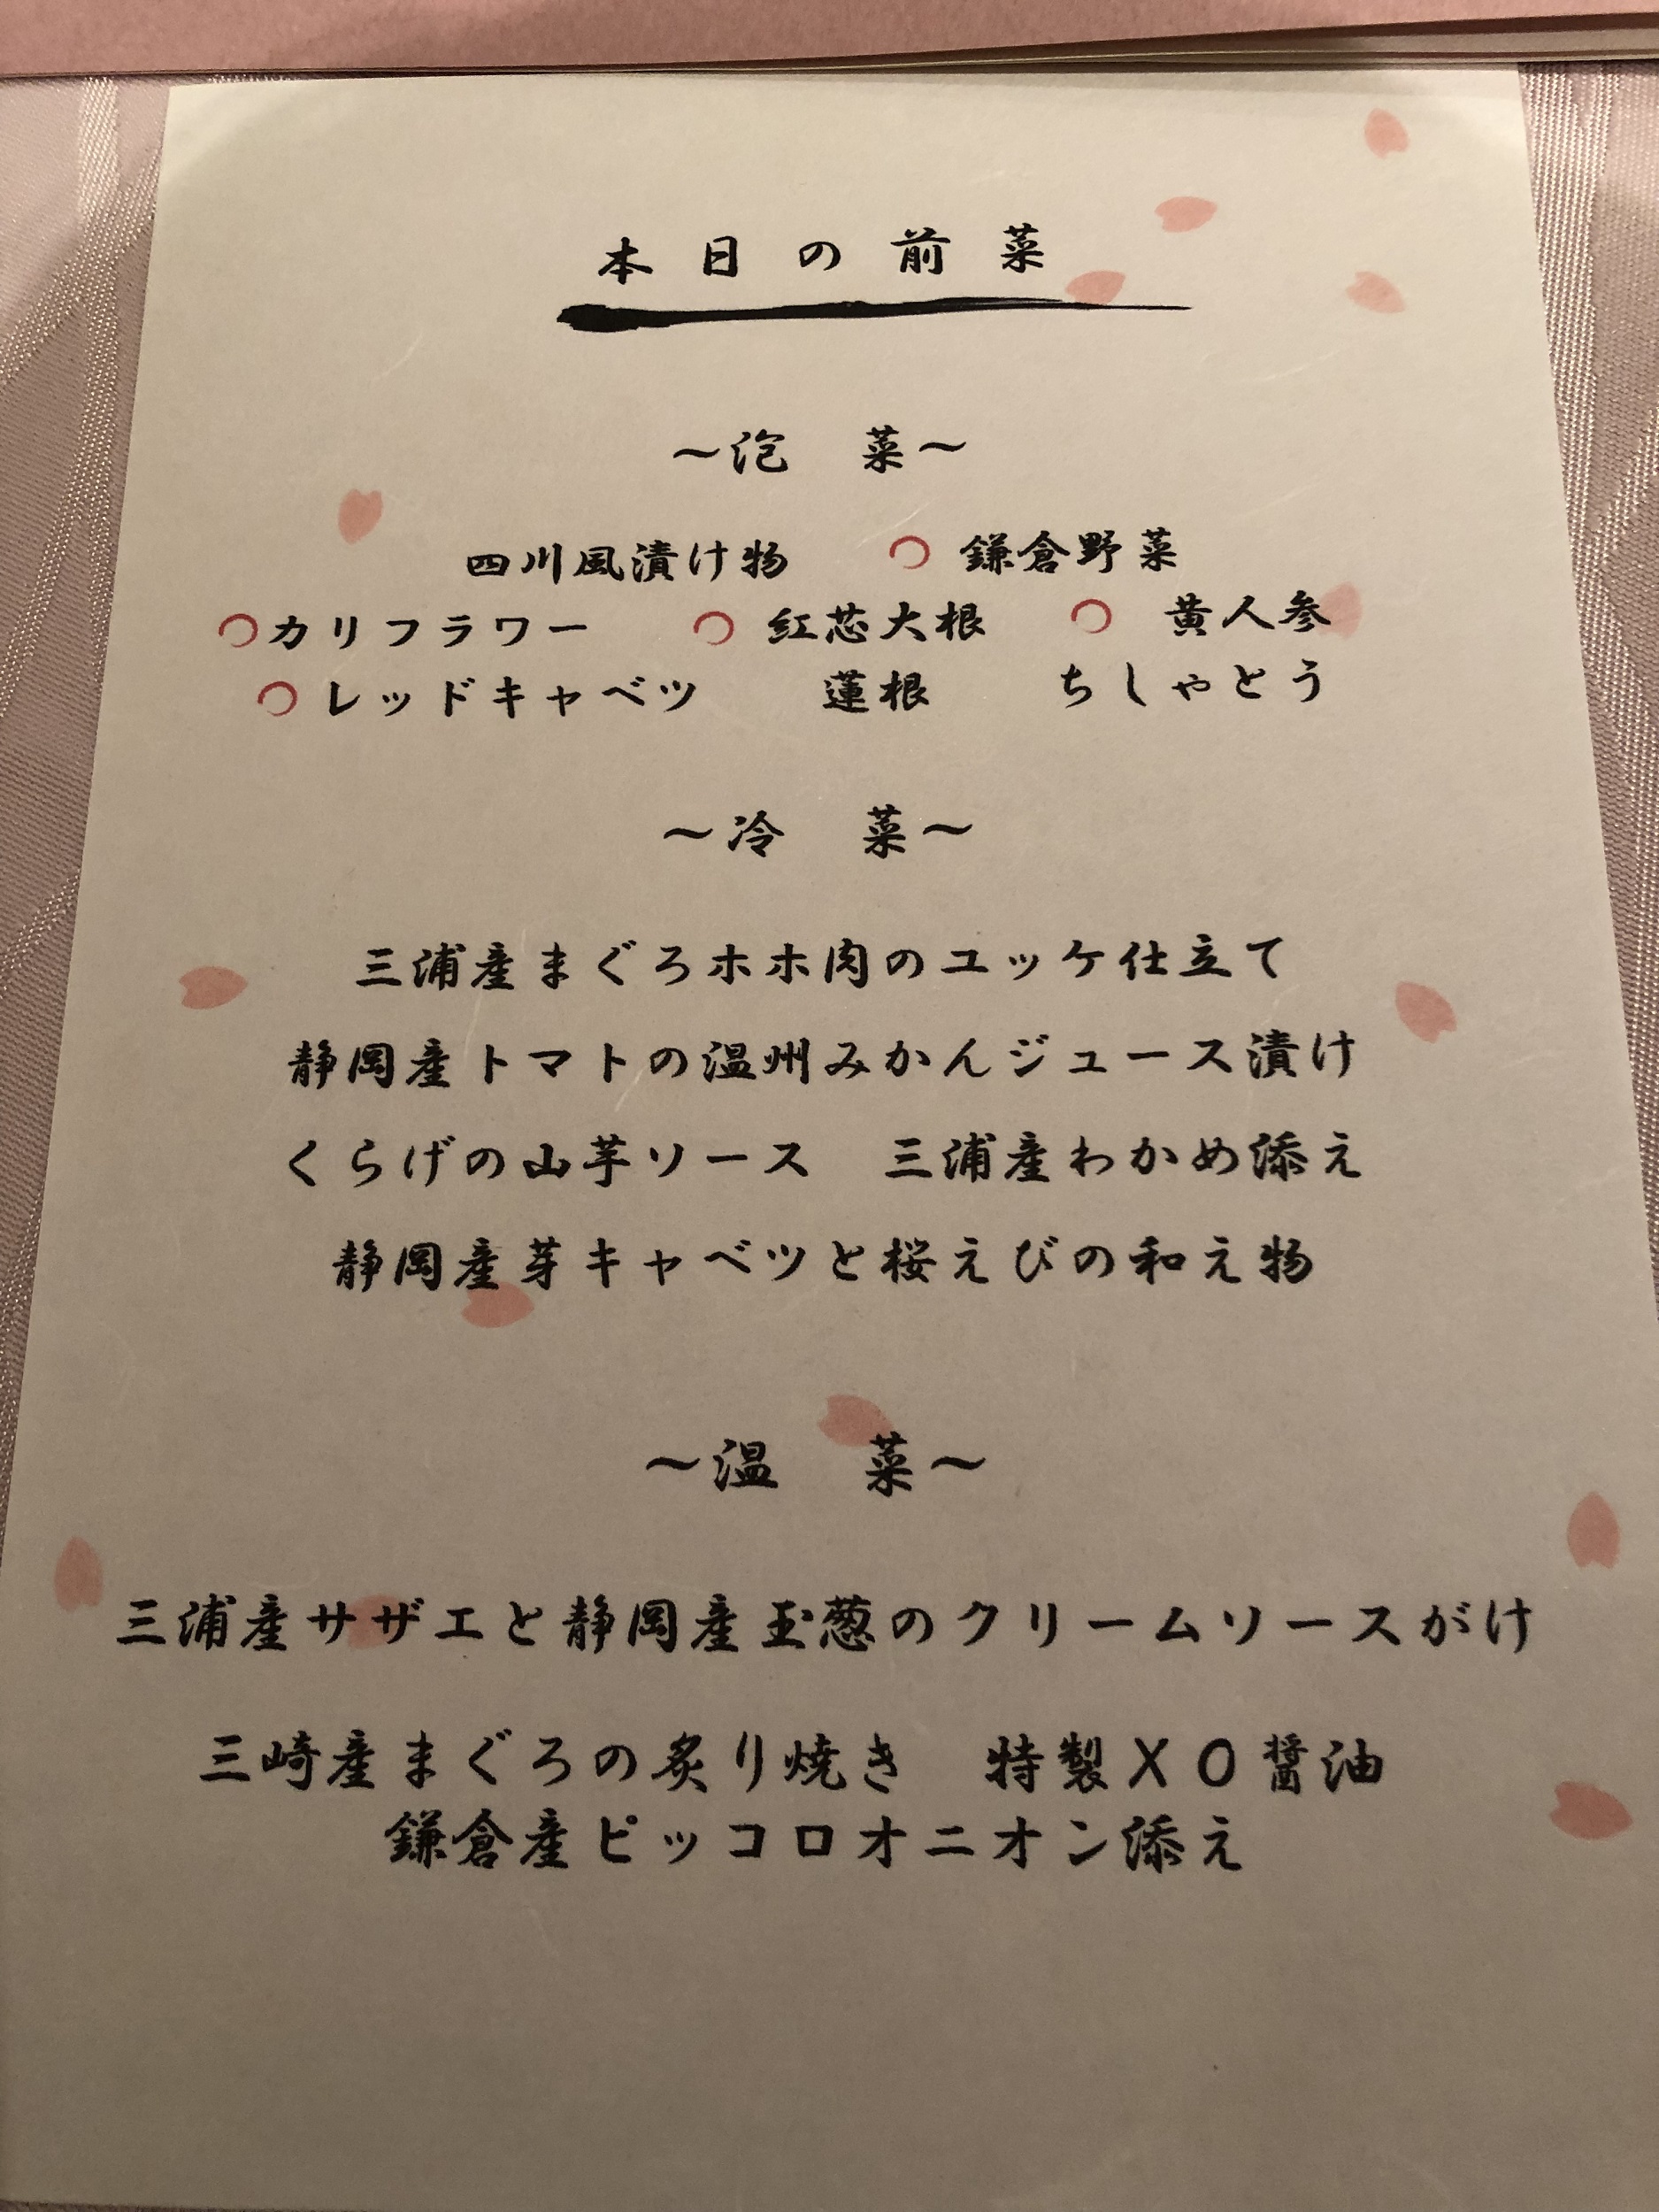 本日の前菜
～泡　菜～
四川風漬け物　○ 鎌倉野菜
○カリフラワー　○ 紅芯大根　○ 黄人参
○レッドキャベツ　蓮根　ちしゃとう
～冷　菜～
三浦産まぐろホホ肉のユッケ仕立て
静岡産トマトの温州みかんジュース漬け
くらげの山芋ソース　三浦産わかめ添え
静岡産芽キャベツと桜えびの和え物
～温　菜～
三浦産サザエと静岡産玉葱のクリームソースがけ
三崎産まぐろの炙り焼き　特製ＸＯ醤油
鎌倉産ピッコロオニオン添え